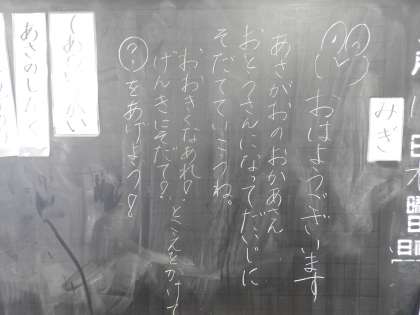 月
日
曜日
日直
みぎ
おはようございます
あさがおのおかあさん
おとうさんになってだいじに
そだてていこうね。
おおきくなあれ！
げんきにそだて！とこえをかけて
?をあげよう！
あさのしたく